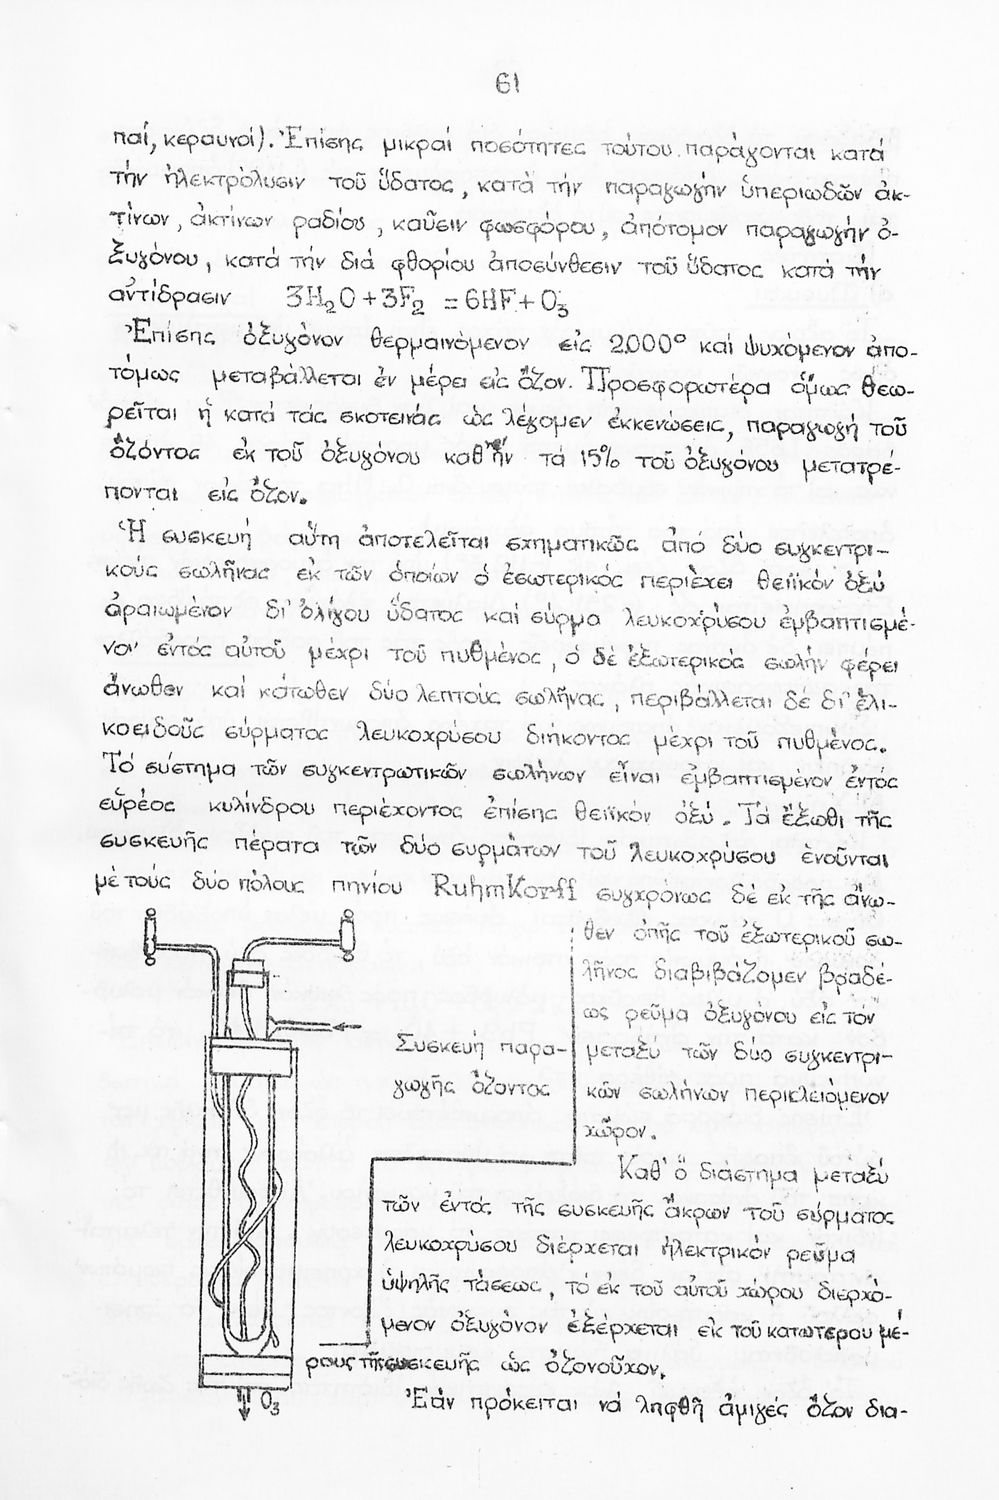 61
παί, κεραυνοί). Ἐπίσης μικραί ποσότητες τούτου παράγονται κατά
τήν ἠλεκτρόλυσιν τοῦ ὕδατος, κατά τήν παραγωγήν ὑπεριωδῶν ἀκ-
τίνων, ἀκτίνων ραδίου, καῦσιν φωσφόρου, ἀπότομον παραγωγήν ὀ-
ξυγόνου, κατά τήν διά φθορίου ἀποσύνθεσιν τοῦ ὕδατος κατά τήν
ἀντίδρασιν 3H₂O + 3F₂ = 6HF + O₃
Ἐπίσης ὀξυγόνον θερμαινόμενον εἰς 2.000° καί ψυχόμενον ἀπο-
τόμως μεταβάλλεται ἐν μέρει εἰς ὄζον. Προσφορωτέρα ὅμως θεω-
ρεῖται ἡ κατά τάς σκοτεινάς ὡς λέγομεν ἐκκενώσεις, παραγωγή τοῦ
ὄζόντος ἐκ τοῦ ὀξυγόνου καθ'ἥν τά 15% τοῦ ὀξυγόνου μετατρέ-
πονται εἰς ὄζον.
Ἡ συσκευή αὕτη ἀποτελεῖται σχηματικῶς ἀπό δύο συγκεντρι-
κούς σωλῆνας ἐκ τῶν ὁποίων ὁ ἐσωτερικός περιέχει θειϊκόν ὀξύ
ἀραιωμένον δι' ὀλίγου ὕδατος καί σύρμα λευκοχρύσου ἐμβαπτισμέ-
νον ἐντός αὐτοῦ μέχρι τοῦ πυθμένος, ὁ δέ ἐξωτερικός σωλήν φέρει
ἄνωθεν καί κάτωθεν δύο λεπτούς σωλῆνας, περιβάλλεται δέ δι' ἑλι-
κοειδοῦς σύρματος λευκοχρύσου διήκοντος μέχρι τοῦ πυθμένος.
Τό σύστημα τῶν συγκεντρωτικῶν σωλήνων εἶναι ἐμβαπτισμένον ἐντός
εὐρέος κυλίνδρου περιέχοντος ἐπίσης θειϊκόν ὀξύ. Τά ἔξωθι τῆς
συσκευῆς πέρατα τῶν δύο συρμάτων τοῦ λευκοχρύσου ἑνοῦνται
μέ τούς δύο πόλους πηνίου RuhmKorff συγχρόνως δέ ἐκ τῆς ἄνω-
θεν ὀπῆς τοῦ ἐξωτερικοῦ σω-
λῆνος διαβιβάζομεν βραδέ-
ως ρεῦμα ὀξυγόνου εἰς τόν
μεταξύ τῶν δύο συγκεντρι-
κῶν σωλήνων περικλειόμενον
χῶρον.
Συσκευή παρα-
γωγῆς ὄζοντος
Καθ' ὅ διάστημα μεταξύ
τῶν ἐντός τῆς συσκευῆς ἄκρων τοῦ σύρματος
λευκοχρύσου διέρχεται ἠλεκτρικόν ρεῦμα
ὑψηλῆς τάσεως, τό ἐκ τοῦ αὐτοῦ χώρου διερχό-
μενον ὀξυγόνον ἐξέρχεται ἐκ τοῦ κατωτερου μέ-
ρους τῆς συσκευῆς ὡς ὀζονοῦχον.
O₃
Ἐάν πρόκειται νά ληφθῆ ἀμιγές ὄζον δια-